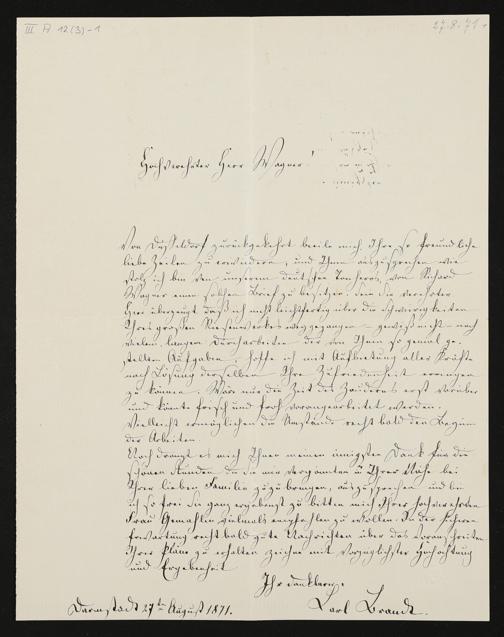 III A 12(3)-1
27.8.71.
Hochverehrter Herr Wagner!
Von Düsseldorf zurückgekehrt beeile mich Ihre so freundliche
liebe Zeilen zu erwiedern, und Ihnen auszusprechen wie
stolz ich bin von unserem deutschen Tonheros, von Richard
Wagner einen solchen Brief zu besitzen, denn Sie verehrter
Herr überzeugt, daß ich nicht leichtfertig über die Schwierigkeiten
Ihres großen Riesenwerkes weggegangen – gewiß nicht – nach
vielem langem Durcharbeiten der von Ihnen so genial ge-
stellten Aufgaben, hoffe ich mit Aufbietung aller Kräfte
nach Lösung derselben Ihre Zufriedenheit erringen
zu können. Wäre nur die Zeit des Zauderns erst vorüber
und könnte frisch und froh vorangearbeitet werden.
Vielleicht ermöglichen die Umstände recht bald den Beginn
der Arbeiten.
Noch drängt es mich Ihnen meinen innigsten Dank für die
schönen Stunden die mir vergönnten in Ihrer Nähe bei
Ihrer lieben Familie zuzubringen, auszusprechen und bin
ich so frei Sie ganz ergebenst zu bitten mich Ihrer hochverehrten
Frau Gemahlin vielmals empfehlen zu wollen. In der sicheren
Erwartung recht bald gute Nachrichten über das Voranschreiten
Ihrer Pläne zu erhalten zeichne mit vorzüglichster Hochachtung
und Ergebenheit
Ihr dankbarer
Darmstadt 27ten August 1871.
Carl Brandt.